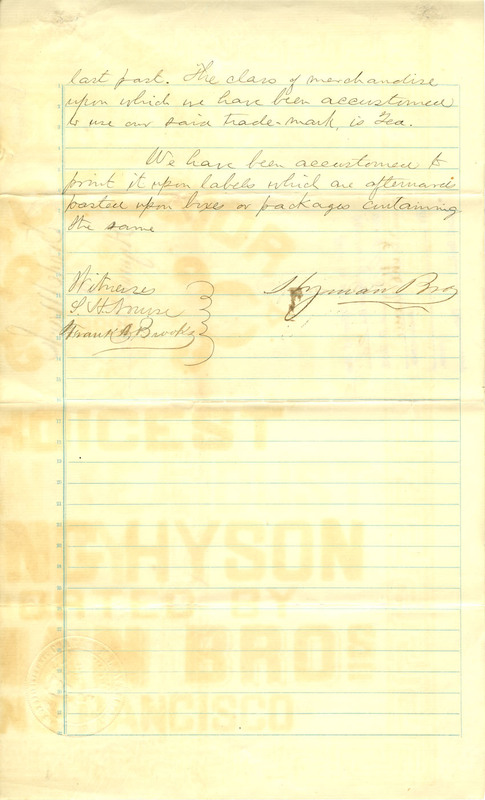 last past. The class of merchandise
upon which we have been accustomed
to use our said trade-mark, is Tea.
We have been accustomed to
print it upon labels which are afterwards
pasted upon boxes or packages containing
the same
Witnesses
Hyman Bros
Frank A. Brooks
OICEST
NE HYSON
ORTED BY
BROS
FRANCISCO